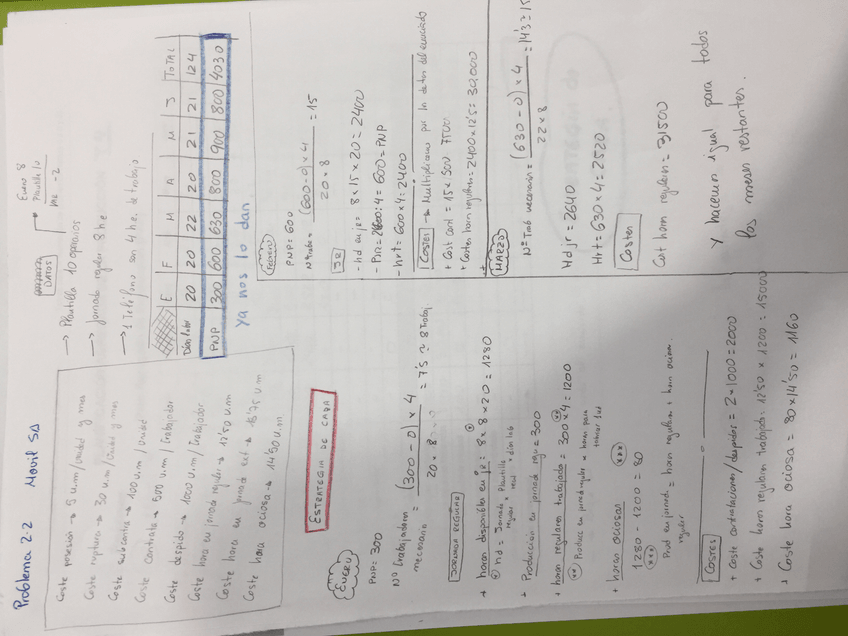 Problema 2.2 Movil SA
Coste posesión → 5 u.m/unidad y mes
Coste ruptura → 30 u.m/unidad y mes
Coste subcontra → 100 u.m/unidad
Coste contrata → 500 u.m/trabajador
Coste despido → 1000 u.m/trabajador
Coste hora en jornada regular → 12'50 u.m
Coste hora en jornada ext → 18'75 u.m
Coste hora ociosa → 14'50 u.m
DATOS
Enero 8
Plantilla 10
-2
→ Plantilla 10 operarios
→ Jornada regular 8 h.e
→ 1 Teléfono son 4 h.e. de trabajo
E F M A M J TOTAL
Días labor 20 20 22 20 21 21 124
PNP 300 600 630 800 900 800 4030
Ya nos lo dan
ESTRATEGIA DE CAZA
ENERO
PNP = 300
Nº trabajadores necesario = (300 - 0) × 4 / 20 × 8 = 7'5 ≈ 8 trabaj
JORNADA REGULAR
+ horas disponibles en jr = 8 × 8 × 20 = 1280
hd = Jornada regular × Plantilla real × días lab
+ Producción en jornada regu = 300
+ horas regulares trabajadas = 300 × 4 = 1200
(**) Produce en jornada regular × horas para
+ horas ociosas (***)
1280 - 1200 = 80
(***)
Prod en jornad. regular = horas regulares - horas ociosas.
Costes
+ Coste contrataciones/despidos = 2 × 1000 = 2000
+ Coste horas regulares trabajado = 12'50 × 1200 = 15000
+ Coste hora ociosa = 80 × 14'50 = 1160
Febrero
PNP = 600
Nº trab = (600 - 0) × 4 / 20 × 8 = 15
JR
- hd en jr = 8 × 15 × 20 = 2400
- PJR = 2400 : 4 = 600 = PNP
- hrt = 600 × 4 = 2400
Costes → Multiplicamos por los datos del enunciado
+ Cost cont = 15 × 500 7500
+ Costes horas regulares = 2400 × 12'5 = 30,000
+
MARZO
Nº Trab necesarios = (630 - 0) × 4 / 22 × 8 = 14'3 ≈ 15
Hdjr = 2640
Hrt = 630 × 4 = 2520
Costes
Cost horas regulares = 31500
Y hacemos igual para todos
los meses restantes.